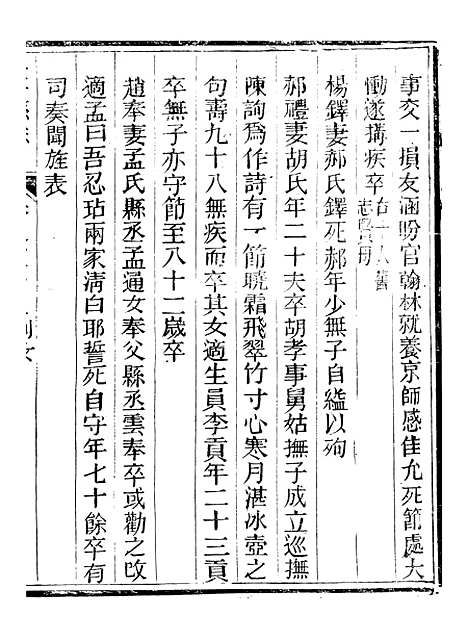 事交一損友涵盼官翰林就養京師感佳允死節處大
慟遂搆疾卒右十八舊
志賢母
楊鐸妻郝氏鐸死郝年少無子自縊以殉
郝禮妻胡氏年二十夫卒胡孝事舅姑撫子成立巡撫
陳詢爲作詩有一節曉霜飛翠竹寸心寒月湛冰壺之
句壽九十八無疾而卒其女適生員李貢年二十三貢
卒無子亦守節至八十二歲卒
趙奉妻孟氏縣丞孟通女奉父縣丞雲奉卒或勸之改
適孟曰吾忍玷兩家淸白耶誓死自守年七十餘卒有
司奏聞旌表
列女